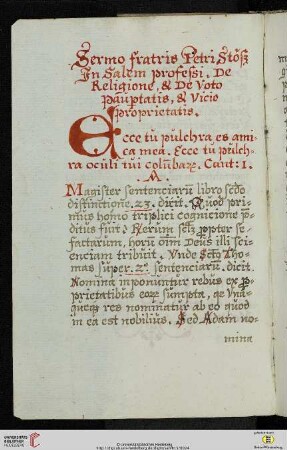 Sermo fratris Petri Stöß
In Salem professi. De
Religione, & De Voto
Paup̃tatis, & Vicio
Proprietatis.
Ecce tu pulchra es ami-
ca mea. Ecce tu pulch-
ra oculi tui colūbarꝫ. Cant: 1.
A
Magister sententiarū libro scd̃o
distinctionẽ. 23. dicit. Quod pri-
mus homo triplici cognicione p̃-
ditus fuit. Rerum sc̃tꝫ ꝓpter se
factarum, horũ oĩm Deus illi sci-
enciam tribuit. Vnde Sctꝫ Tho-
mas super. 2ᵒ. sentenciarũ. dicit.
Nomina imponuntur rebus ex ꝓ-
prietatibus eoꝝ sumpta, qe Vna-
quęqꝫ res nominatur ab eo quod
in ea est nobilius, Sed Adam no-
mina
UNIVERSITÄTS-
BIBLIOTHEK
HEIDELBERG
© Universitätsbibliothek Heidelberg
Baden-Württemberg